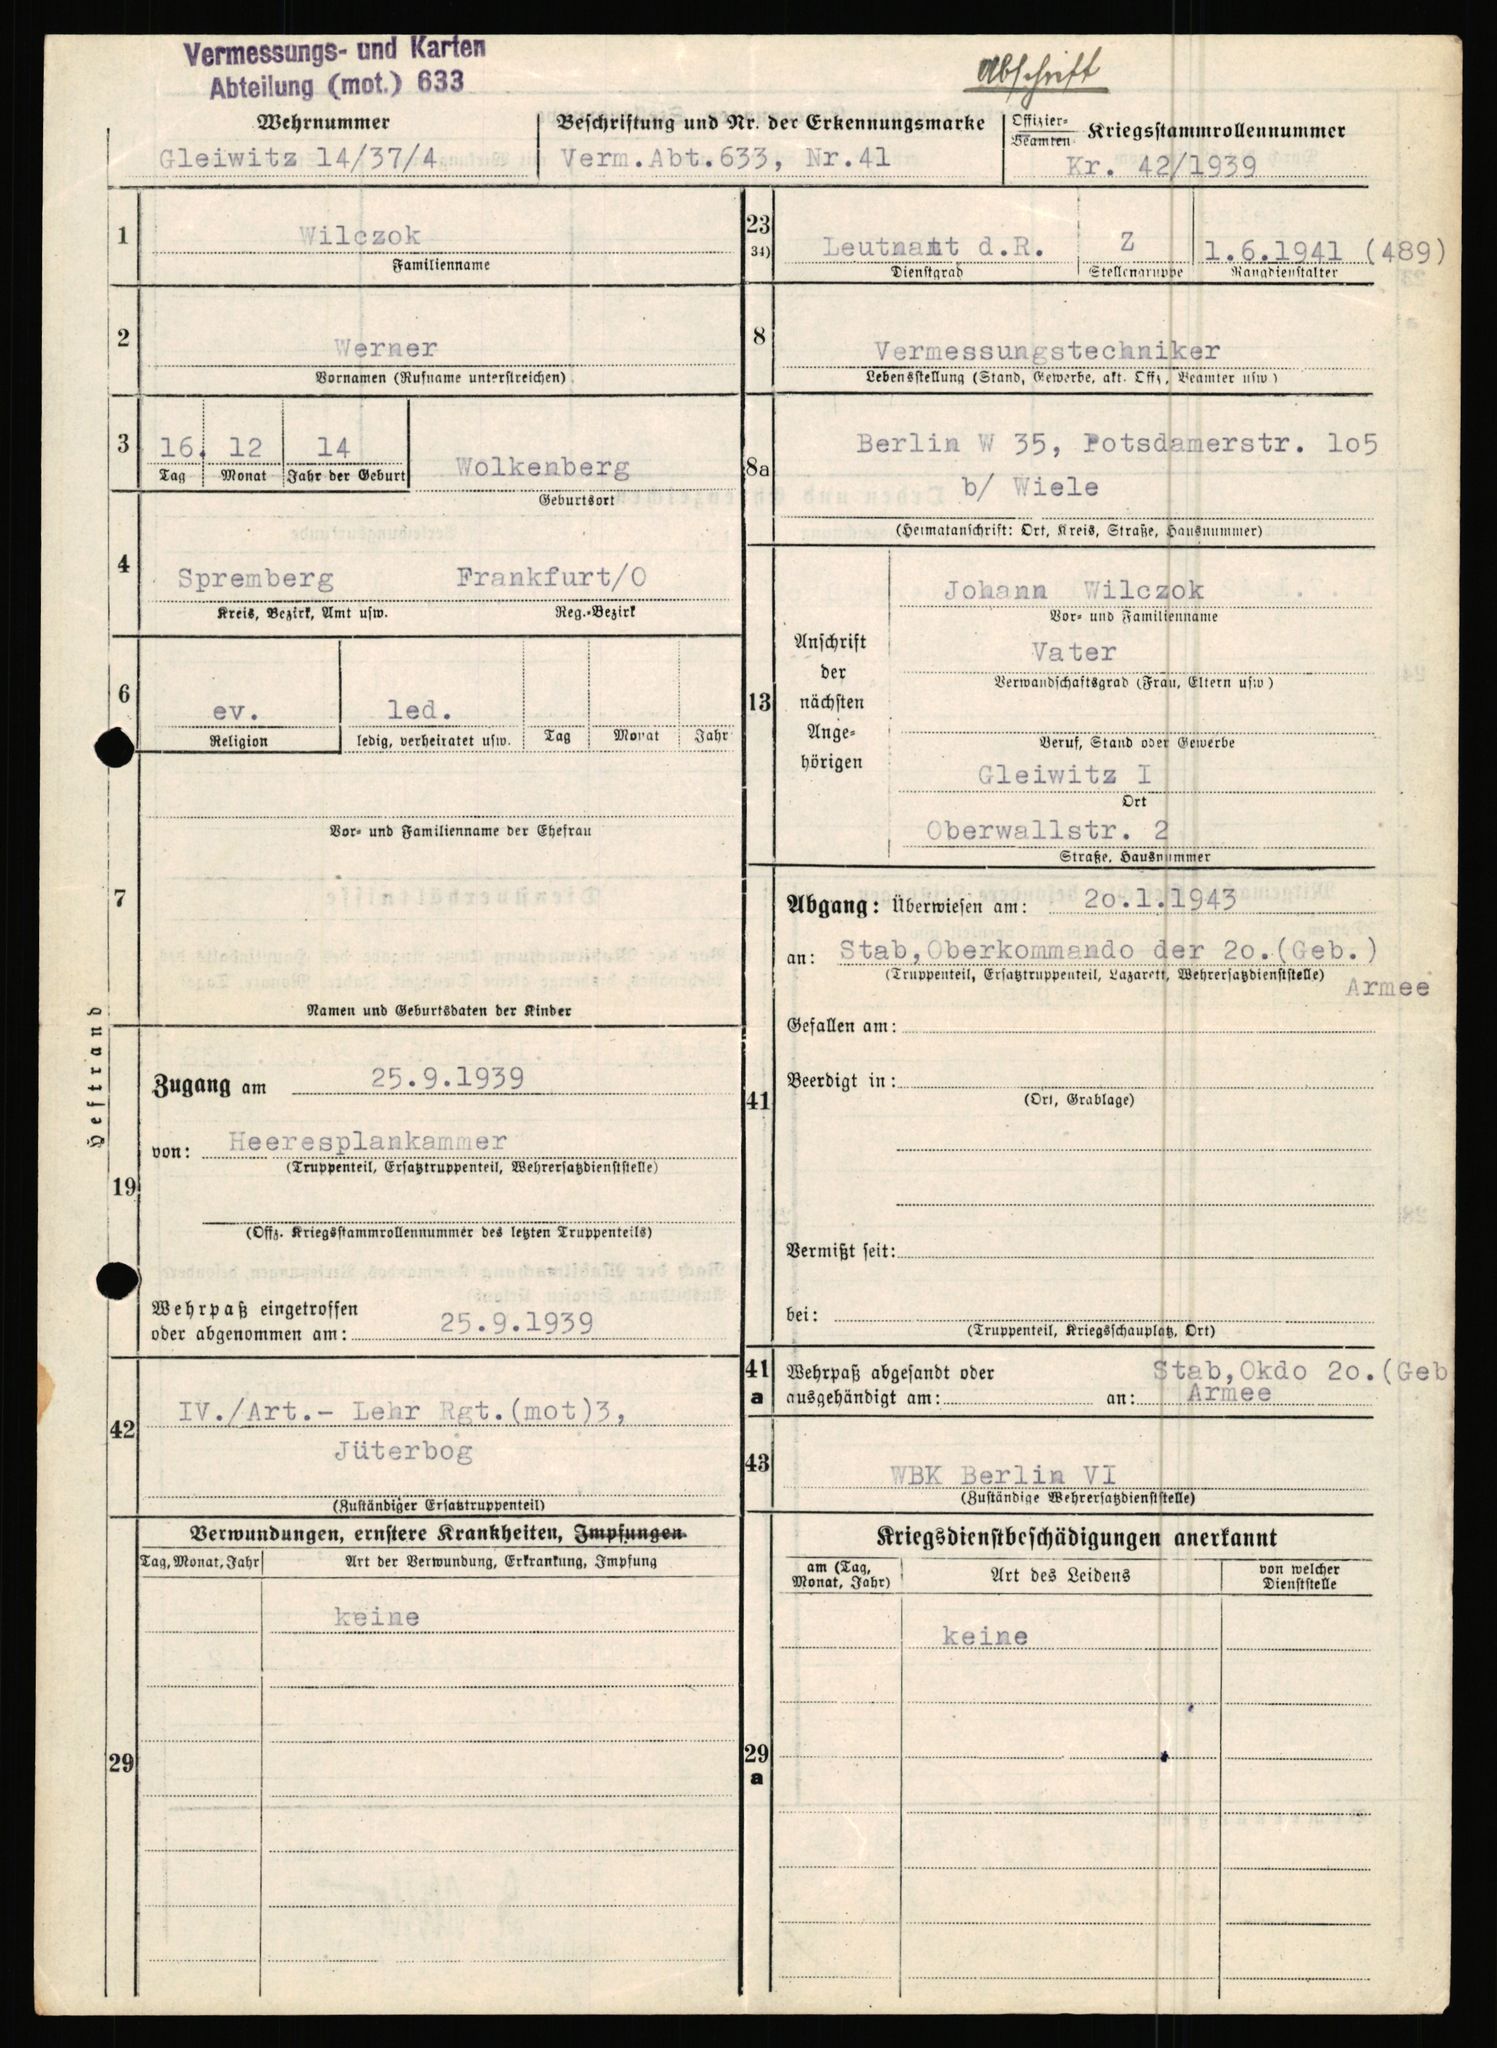 Vermessungs- und Karten
Abteilung (mot.) 633
Abschrift
Wehrnummer
Gleiwitz 14/37/4
Beschriftung und Nr. der Erkennungsmarke
Verm.Abt.633, Nr.41
Offizier-
Beamten
Kriegsstammrollennummer
Kr. 42/1939
1
Wilczok
Familienname
23
34)
Leutnant d.R.
Dienstgrad
Z
Stellengruppe
1.6.1941 (489)
Rangdienstalter
2
Werner
Vornamen (Rufname unterstreichen)
8
Vermessungstechniker
Lebensstellung (Stand, Gewerbe, akt. Offz, Beamter usw)
3
16. 12 14
Tag Monat Jahr der Geburt
Wolkenberg
Geburtsort
8a
Berlin W 35, Potsdamerstr. 1o5
b/ Wiele
(Heimatanschrift: Ort, Kreis, Straße, Hausnummer)
4
Spremberg Frankfurt/O
Kreis, Bezirk, Amt usw. Reg.-Bezirk
13
Anschrift
der
nächsten
Ange-
hörigen
Johann Wilczok
Vor- und Familienname
Vater
Verwandschaftsgrad (Frau, Eltern usw)
Beruf, Stand oder Gewerbe
Gleiwitz I
Ort
Oberwallstr. 2
Straße, Hausnummer
6
ev. led.
Religion ledig, verheiratet usw. Tag Monat Jahr
7
Vor- und Familienname der Ehefrau
Namen und Geburtsdaten der Kinder
Heftrand
41
Abgang: Überwiesen am: 2o.1.1943
an: Stab,Oberkommando der 2o.(Geb.)
(Truppenteil, Ersatztruppenteil, Lazarett, Wehrersatzdienststelle)
Armee
Gefallen am:
Beerdigt in:
(Ort, Grablage)
Vermißt seit:
bei:
(Truppenteil, Kriegsschauplatz, Ort)
19
Zugang am 25.9.1939
von: Heeresplankammer
(Truppenteil, Ersatztruppenteil, Wehrersatzdienststelle)
(Offz. Kriegsstammrollennummer des letzten Truppenteils)
Wehrpaß eingetroffen
oder abgenommen am: 25.9.1939
41
a
Wehrpaß abgesandt oder Stab,Okdo 2o.(Geb
ausgehändigt am: an: Armee
42
IV./Art.- Lehr Rgt.(mot)3,
Jüterbog
(Zuständiger Ersatztruppenteil)
43
WBK Berlin VI
(Zuständige Wehrersatzdienststelle)
29
Verwundungen, ernstere Krankheiten, Impfungen
Tag, Monat, Jahr Art der Verwundung, Erkrankung, Impfung
keine
29
a
Kriegsdienstbeschädigungen anerkannt
am (Tag,
Monat, Jahr)
Art des Leidens
von welcher
Dienststelle
keine